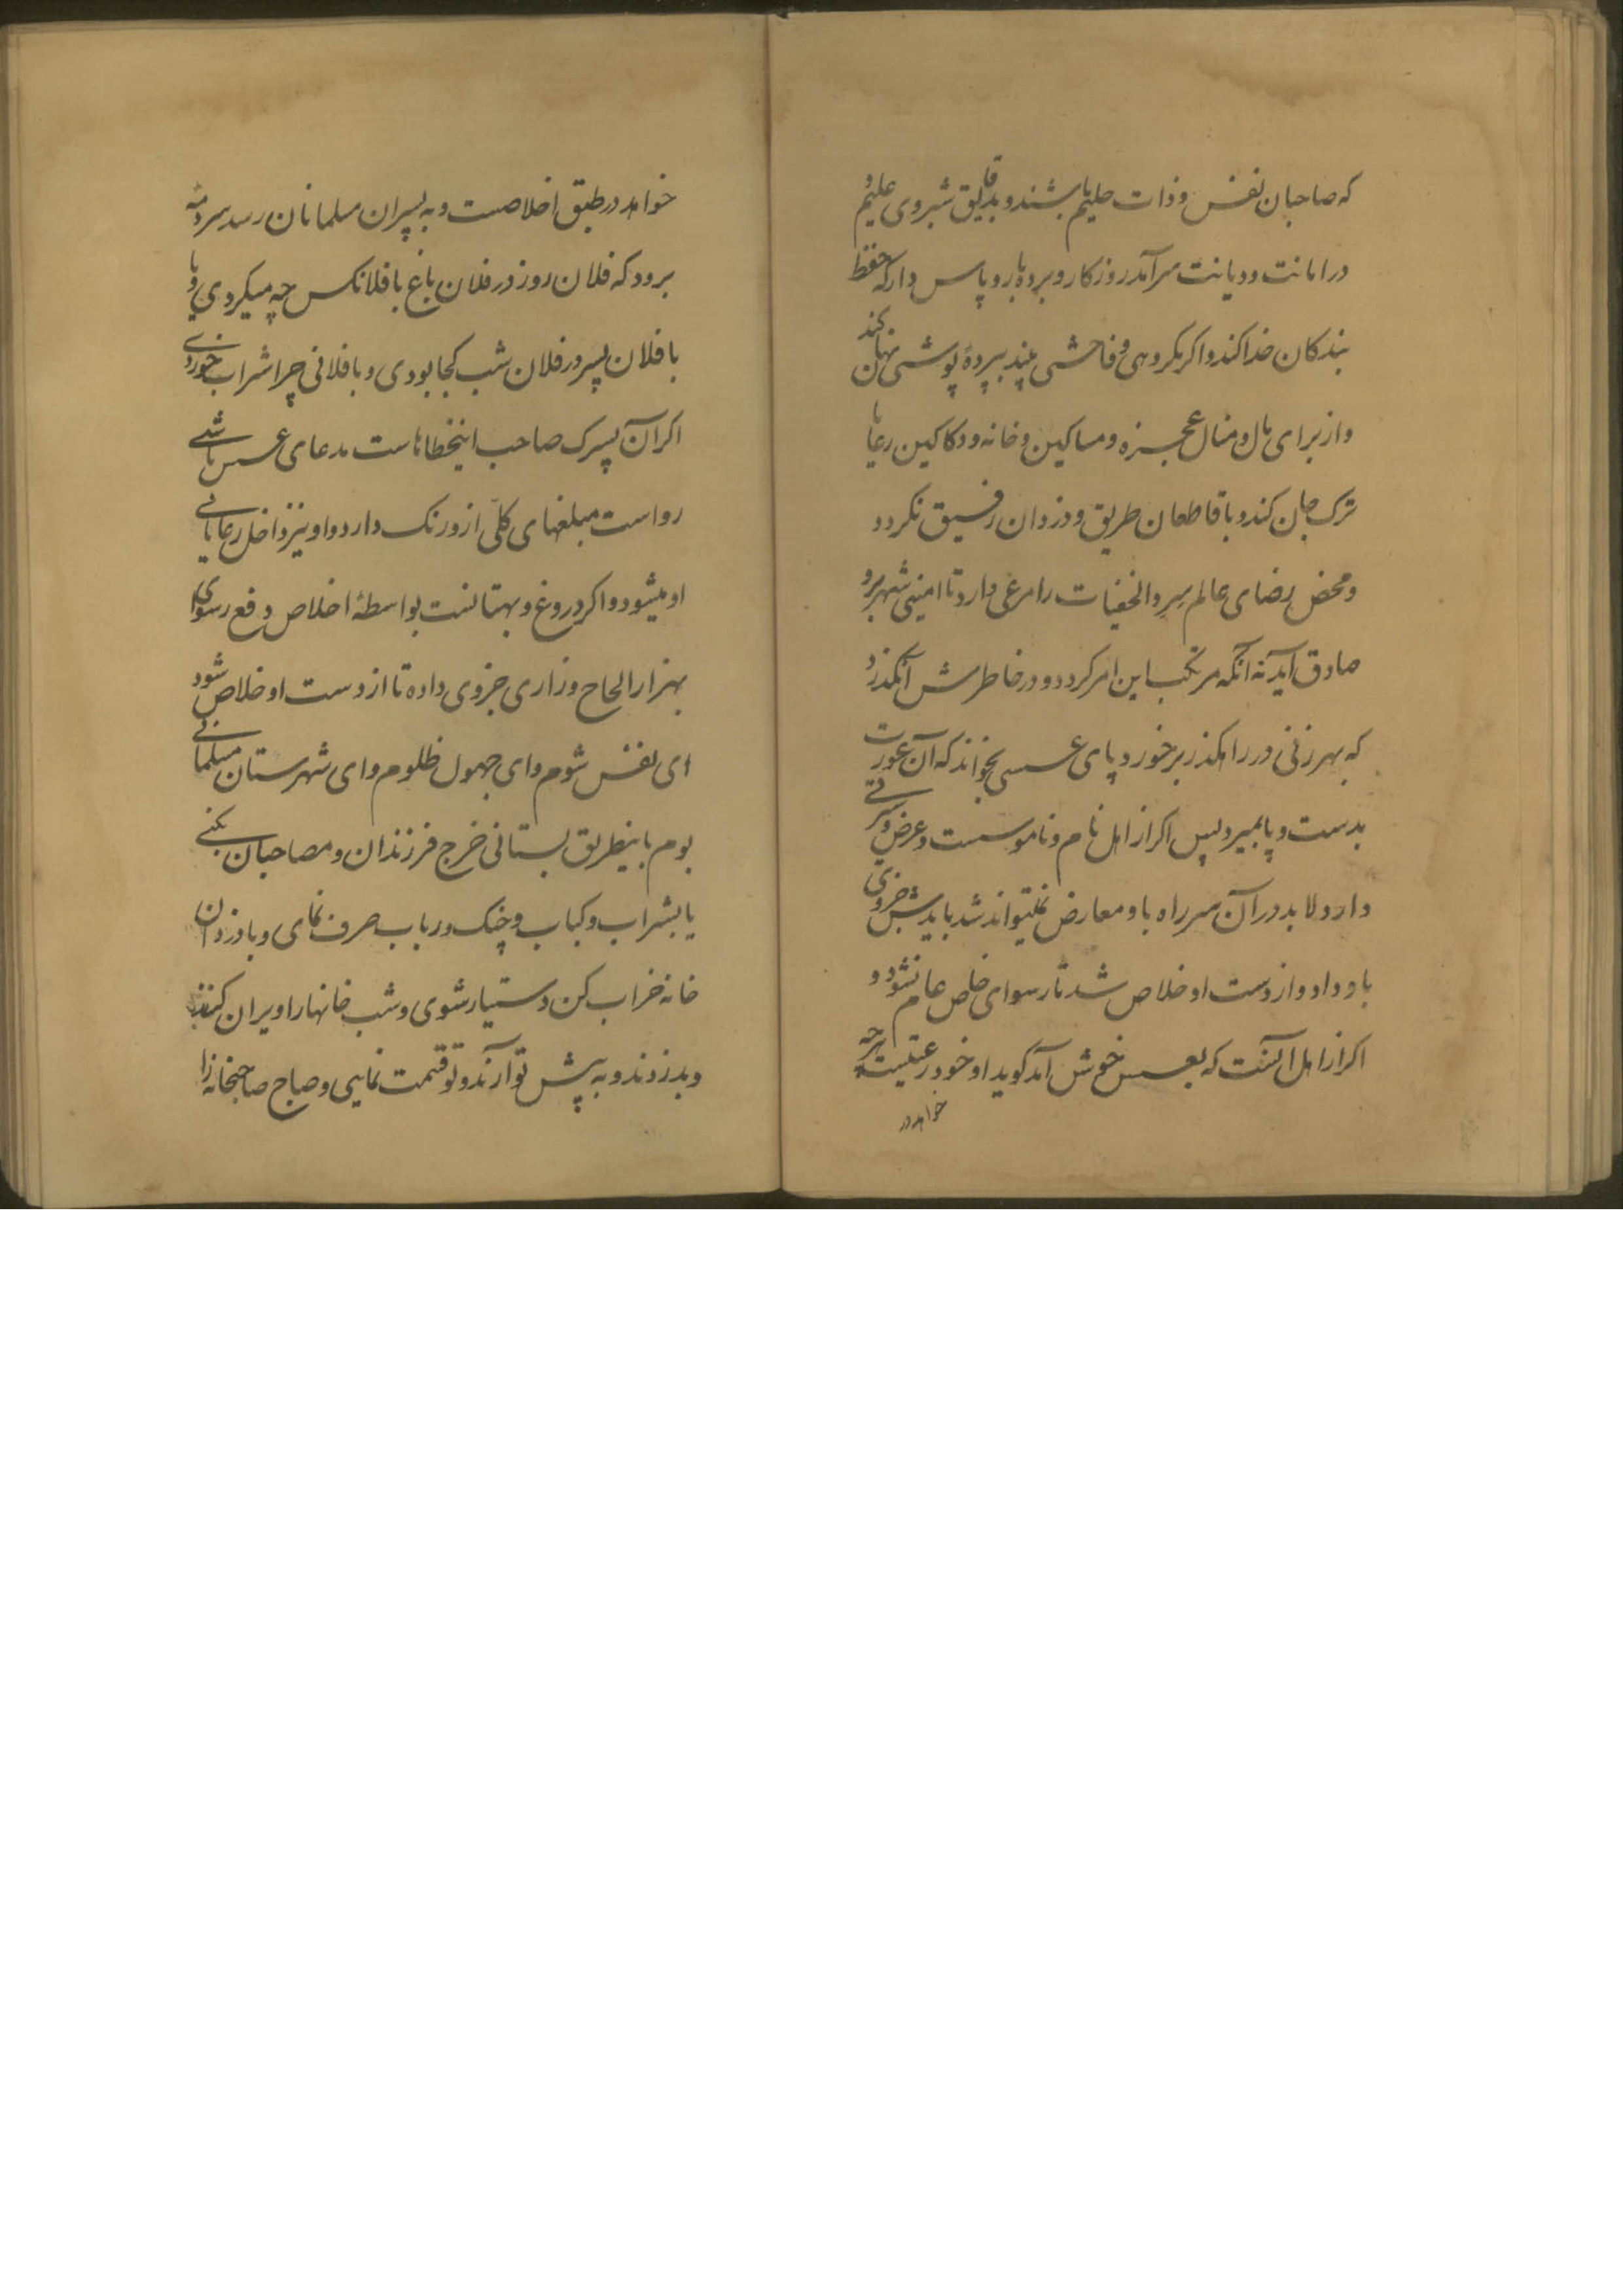 که صاحبان نفس و ذات حلیم باشند و بدقایق شبروی علیم و
در امانت و دیانت سرآمد روزکار و برده بار و پاس دار که حفظ
بندکان خدا کند و اکر مکروهی و فاحشی بیند بپردهٔ پوشی نهان کند
و از برای مال و منال عجزه و مساکین و خانه و دکاکین رعایا
ترک جان کند و با قاطعان طریق و دزدان رفیق نکردد
و محض رضای عالم سر و الخفیات را مرعی دارد تا امینی شهر برو
صادق آید نه آنکه مرتکب این امر کردد و در خاطرش آن کذرد
که بهر زنی در راهکذر برخورد پای عسسی بخواند که آن عورت
بدست و پا بمیرد پس اکر از اهل نام و ناموسست و عرض و سرّی
دارد لابد در آن سر راه باو معارض نمیتواند شد بایدش جزوی
باو داد و از دست او خلاص شد تا رسوای خاص عام نشود و
اکر از اهل آنست که بعسس خوش آمد کوید او خود رعیتیست هرچه
خواهد در
خواهد در طبق اخلاصست و به پسران مسلمانان رسد سر دمه
برود که فلان روز در فلان باغ با فلانکس چه میکردی و یا
با فلان پسر در فلان شب کجا بودی و با فلانی چرا شراب خوردی
اکر آن پسرک صاحب اینخطاهاست مدعای عسس باشی
رواست مبلغهای کلّی ازو رنک دارد و او نیز داخل رعایای
او میشود و اکر دروغ و بهتانست بواسطهٔ اخلاص دفع رسوای
بهزار الحاح و زاری جزوی داده تا از دست او خلاص شود
ای نفس شوم وای جهول ظلوم وای شهرستان مسلمانی
بوم باینطریق بستانی خرج فرزندان و مصاحبان کنی
یا بشراب و کباب و چنک و رباب صرف نمای و با دزدان
خانه خراب کن دستیار شوی و شب خانها را ویران کنند
و بدزدند و به پیش تو آرند و تو قسمت نمایی و صباح صاحبخانه را